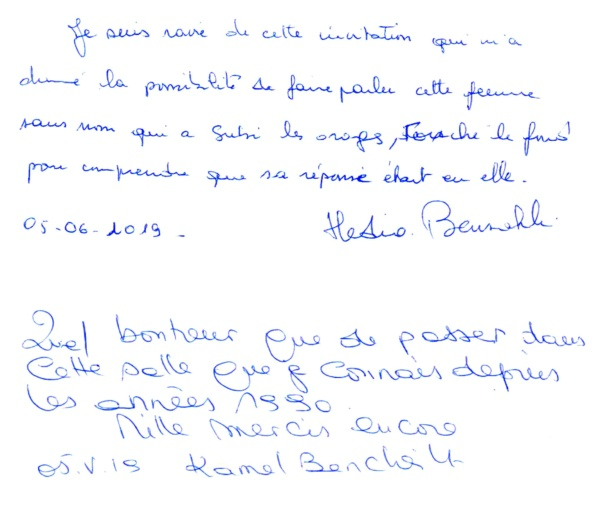 Je suis ravie de cette invitation qui m'a
donné la possibilité de faire parler cette femme
sans nom qui a subi les orages, touché le fond
pour comprendre que sa réponse était en elle.
05-06-2019 -
Quel bonheur que de passer dans
Cette salle que je connais depuis
les années 1990.
Mille mercis encore
05.V.19 Kamel